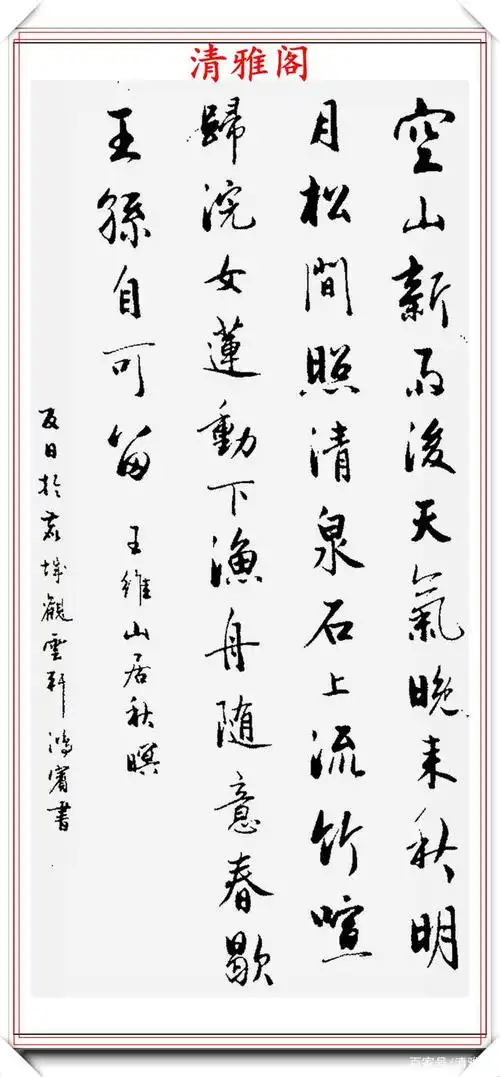 清雅阁
空山新雨後天氣晚来秋明
月松間照清泉石上流竹喧
歸浣女蓮動下漁舟随意春歇
王孫自可留 王維山居秋暝
夏日於蓉城觀雲軒鴻賓書
百家号/清雅